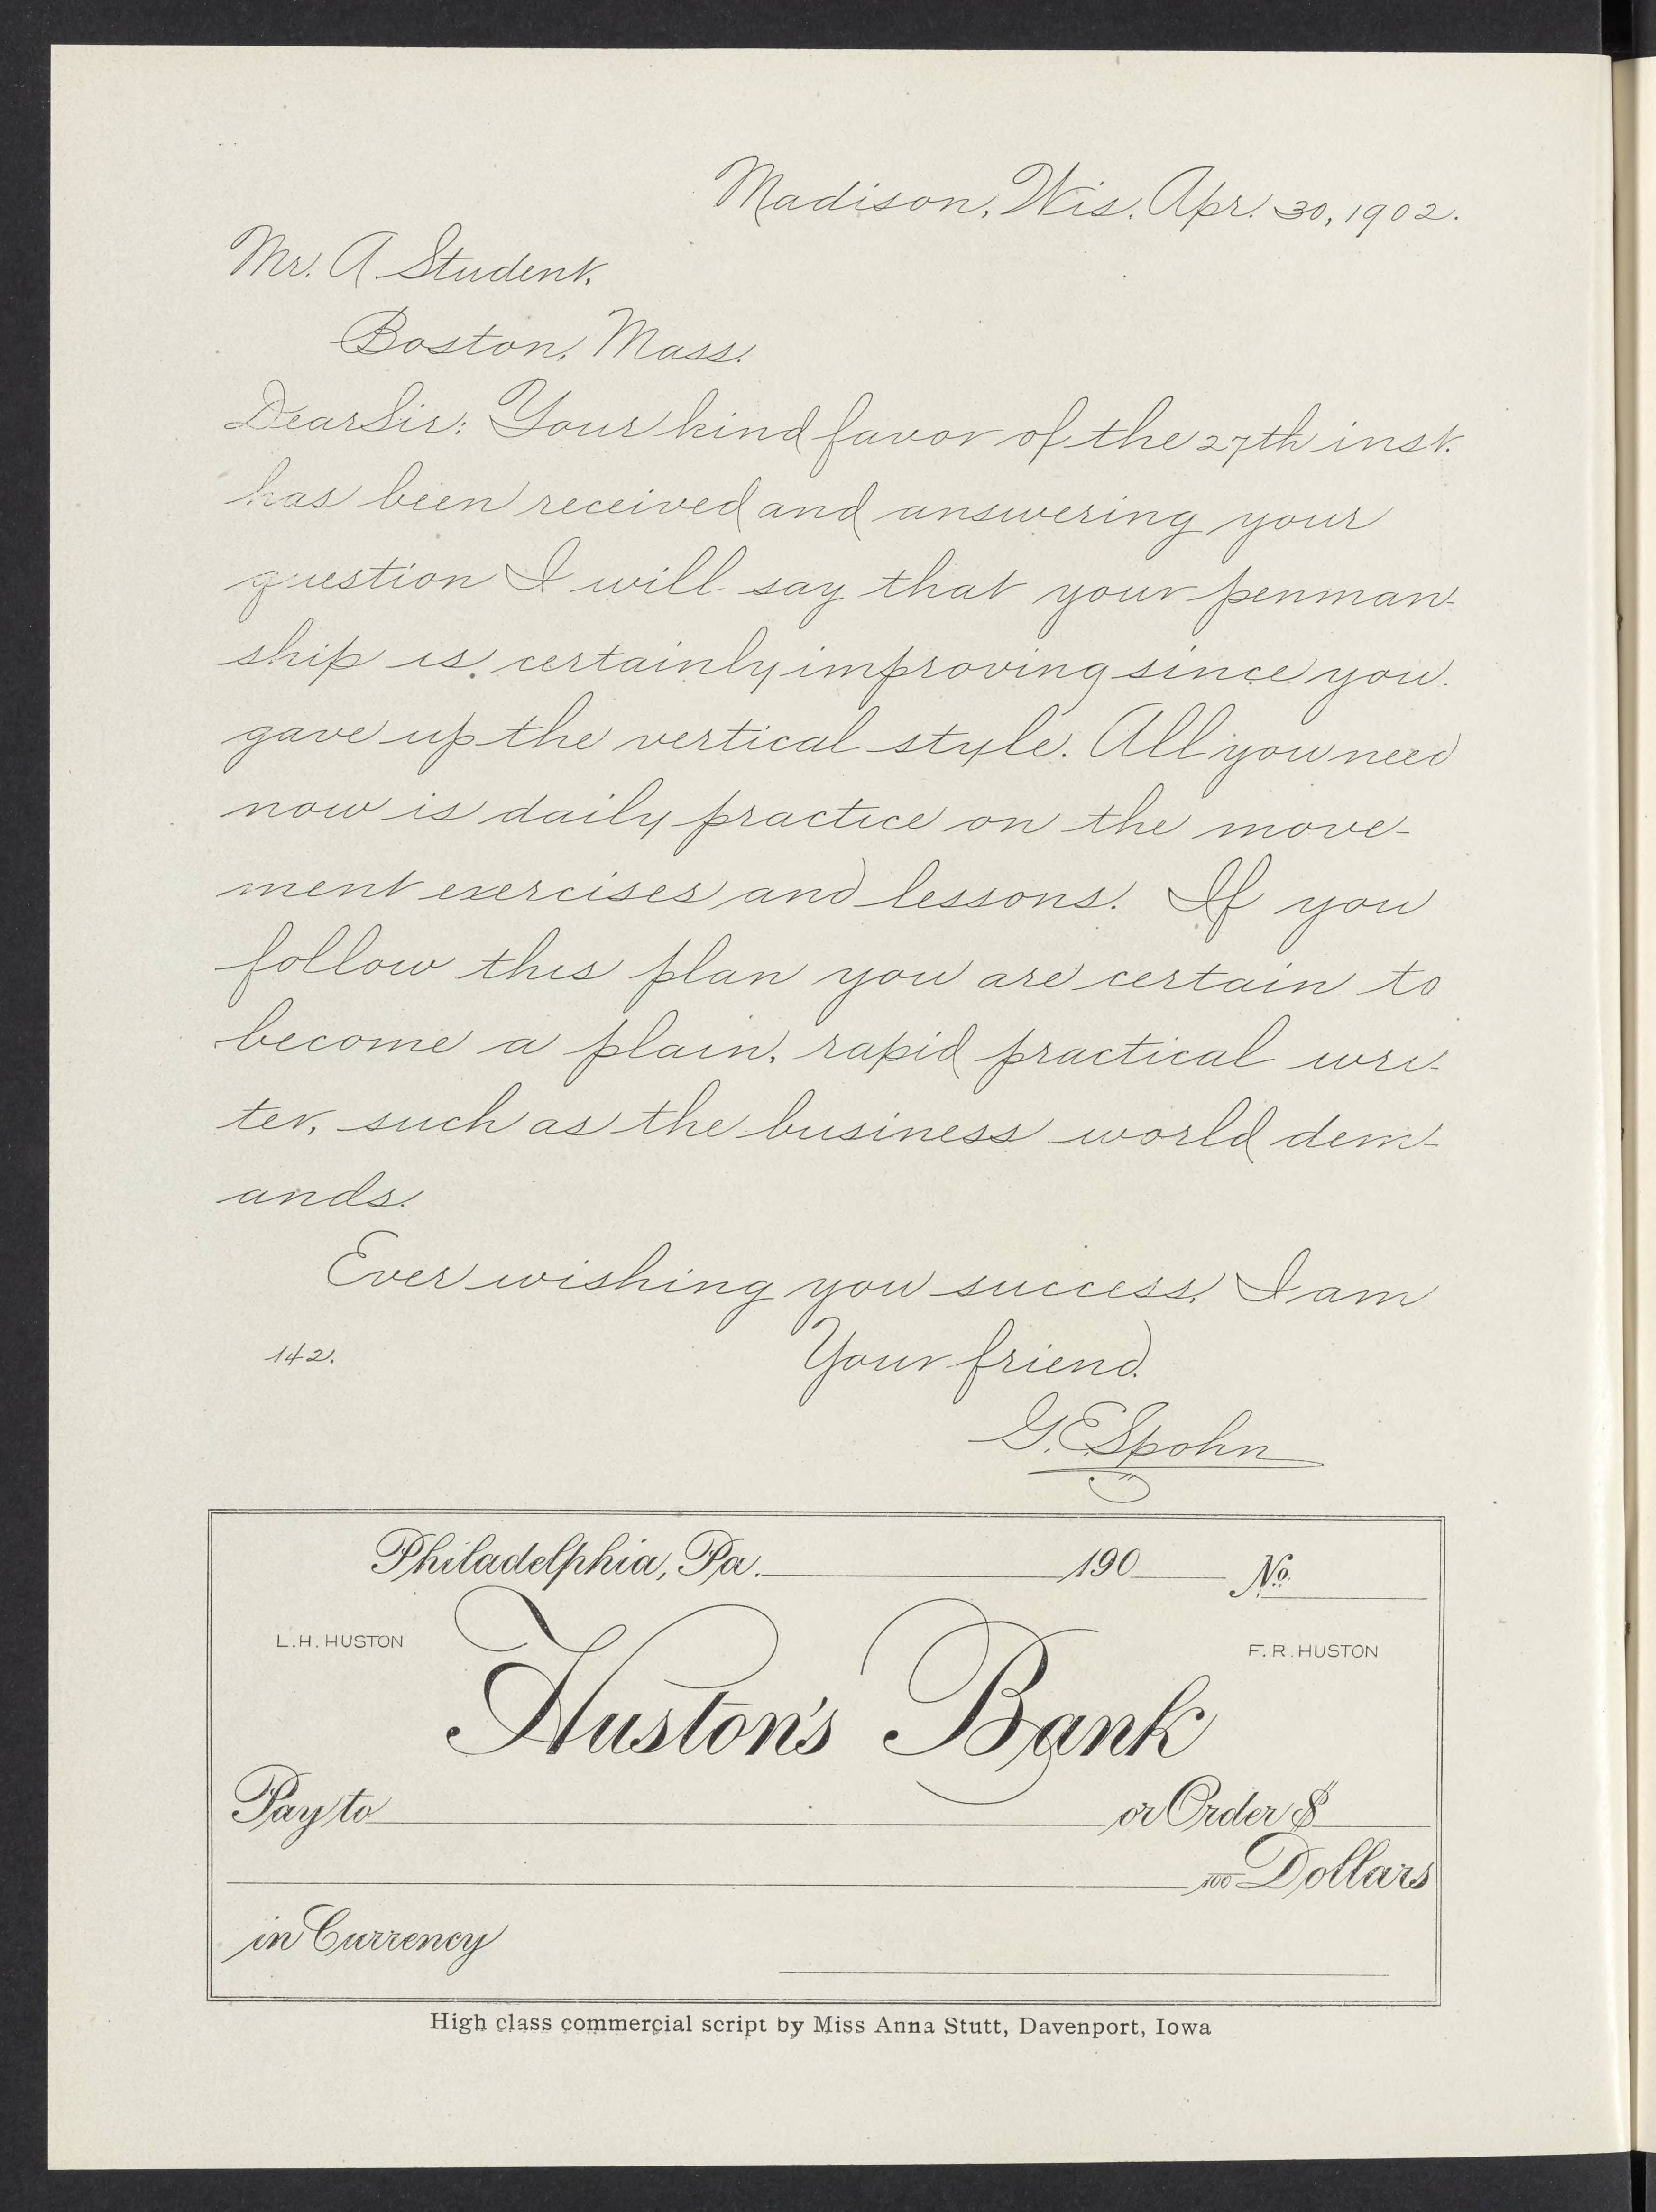 Madison, Wis. Apr. 30, 1902.
Mr. A Student,
Boston, Mass.
Dear Sir: Your kind favor of the 27th inst.
has been received and answering your
question I will say that your penman-
ship is certainly improving since you
gave up the vertical style. All you need
now is daily practice on the move-
ment exercises and lessons. If you
follow this plan you are certain to
become a plain, rapid practical wri-
ter, such as the business world dem-
ands.
Ever wishing you success, I am
142. Your friend.
G. E. Spohn
Philadelphia, Pa. 190 No.
L.H. HUSTON F.R. HUSTON
Huston's Bank
Pay to or Order $
100 Dollars
in Currency
High class commercial script by Miss Anna Stutt, Davenport, Iowa